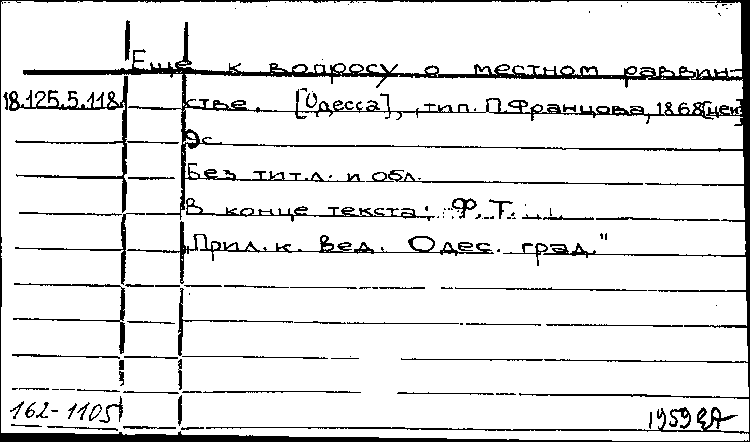 Еще к вопросу о местном раввин-
18.125.5.118 стве. [Одесса], тип. П. Францова, 1868 [ценз.]
9с
Без тит.л. и обл.
В конце текста: Ф.Т...
„Прил. к. Вед. Одес. град."
162-1105 1959